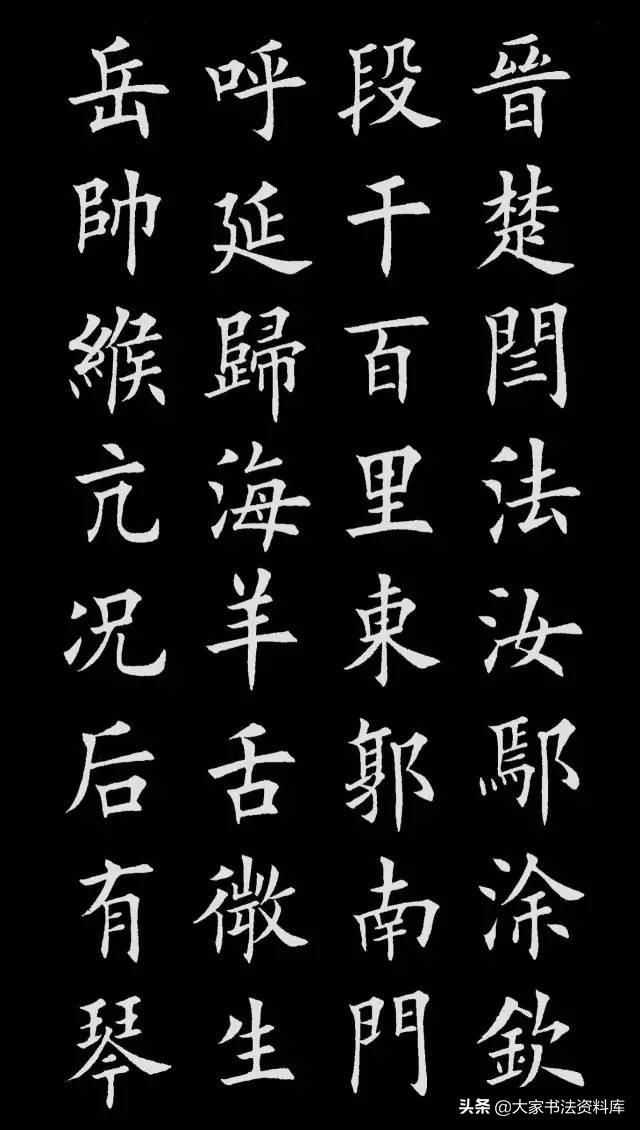 晉楚閆法汝鄢涂欽
段干百里東郭南門
呼延歸海羊舌微生
岳帥緱亢况后有琴
头条 @大家书法资料库